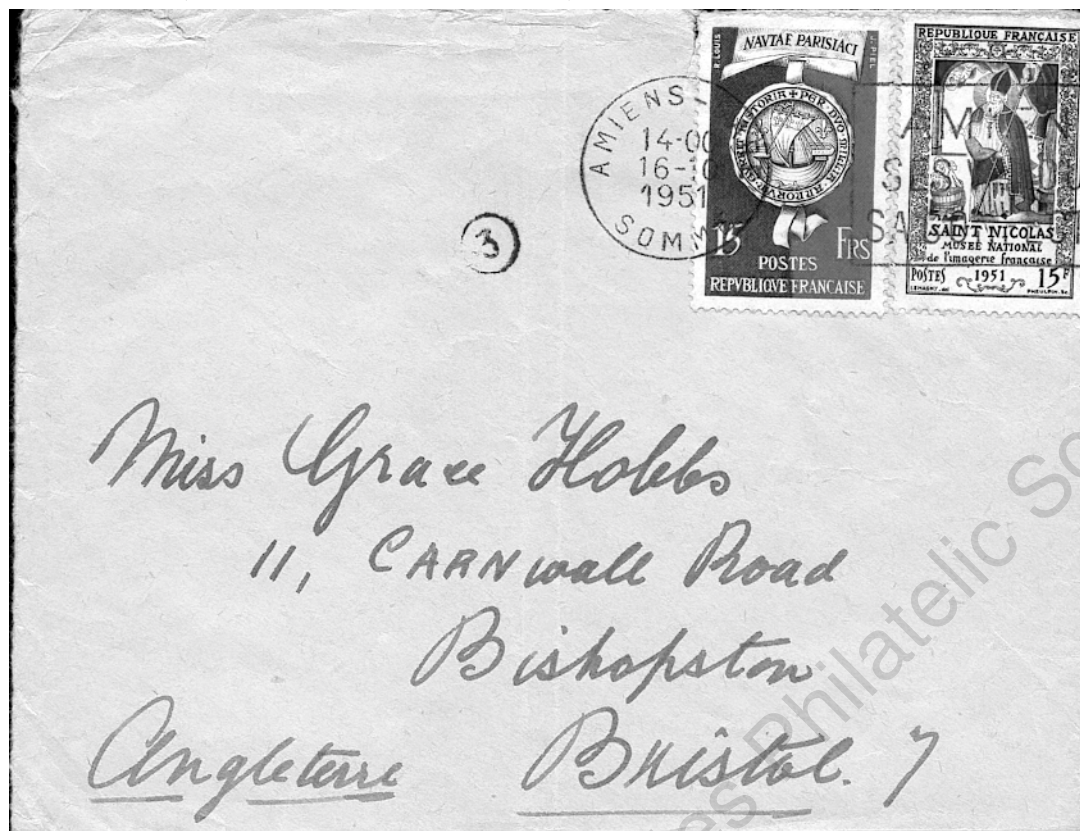 NAVTAE PARISIACI
R. LOUIS
J. PIEL
15 FRS
POSTES
REPVBLIQVE FRANCAISE
REPUBLIQUE FRANÇAISE
SAINT NICOLAS
MUSÉE NATIONAL
de l'imagerie française
POSTES 1951 15F
AMIENS
14-00
16-10
1951
SOMME
3
Miss Grace Hobbs
11, CARNwall Road
Bishopston
Angleterre Bristol. 7
Philatelic